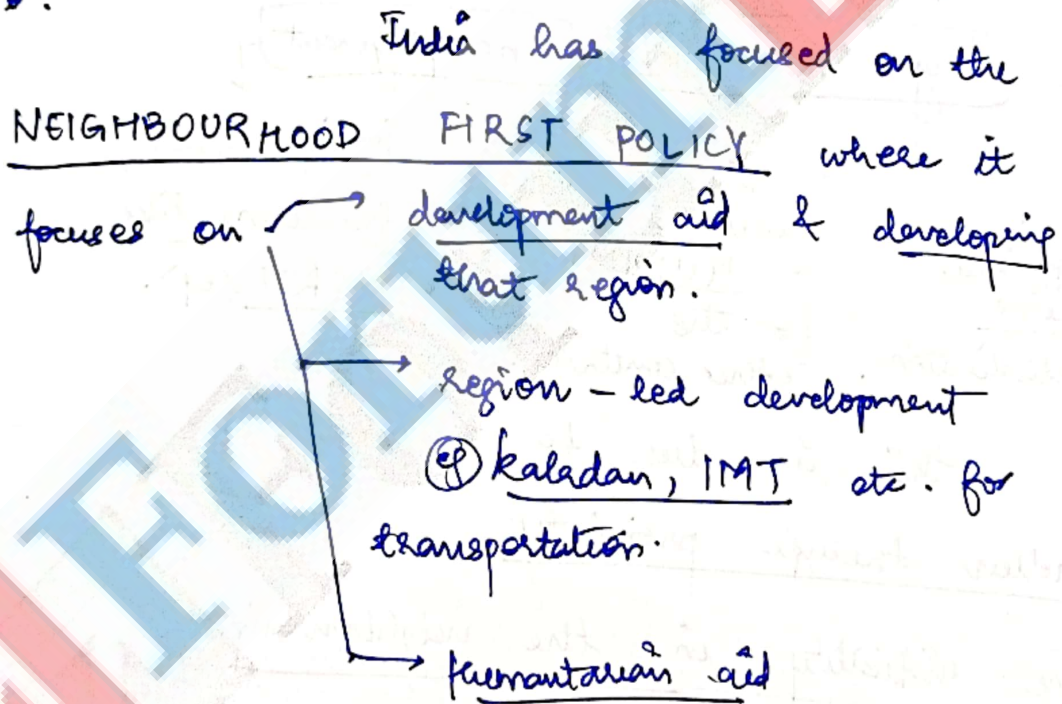 India has focused on the
NEIGHBOURHOOD FIRST POLICY where it
focuses on development aid & developing
that region.
region - led development
eg kaladan, IMT etc. for
transportation.
humantarian aid
Forum